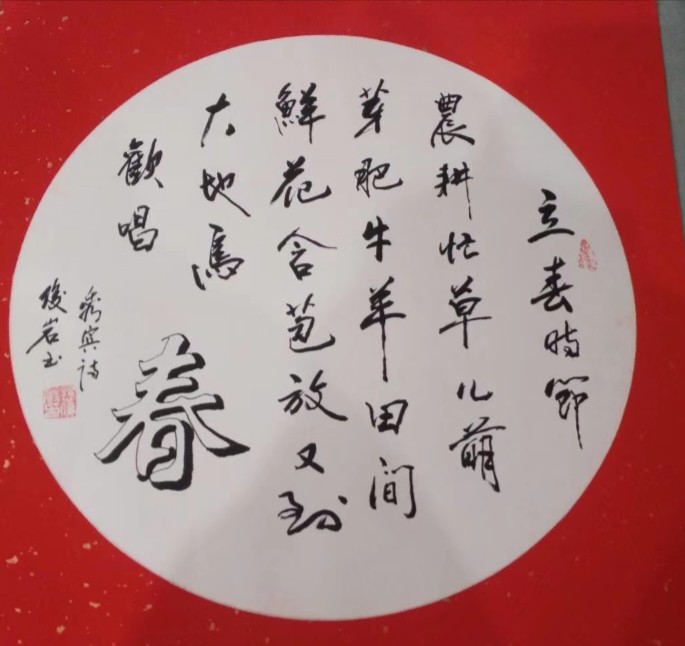 立春時節
農耕忙草儿萌
芽肥牛羊田间
鮮花含苞放又到
大地馬
歡唱
春
秀宾诗
俊岩书